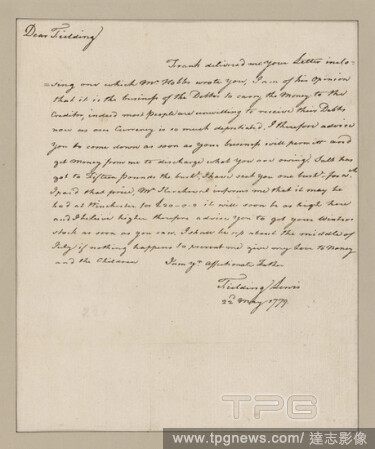 Dear Fielding
Frank delivered me your Letter inclo-
-sing one which Mr Hobbs wrote you, I am of his Opinion
that it is the business of the Debtor to carry the Money to the
Creditor, indeed most People are unwilling to receive their Debts
now as our Currency is so much depretiated. I therefore advise
you to come down as soon as your business will permitt and
get Money from me to discharge what you are owing. Salt has
got to Fifteen pounds the bushl. I have sent you one bushl. for wch
I paid that price, Mr informs me that it may be
had at Winchester for £20.0.0 it will soon be as high here
and I believe higher therefore advise you to get your Winter
stock as soon as you can. I shall be up about the middle of
July if nothing happens to prevent me give my Love to Nancy
and the Children I am yr Affectionate Father
Fielding Lewis
22d May 1779.
TPG
www.tpgnews.com / 達志影像